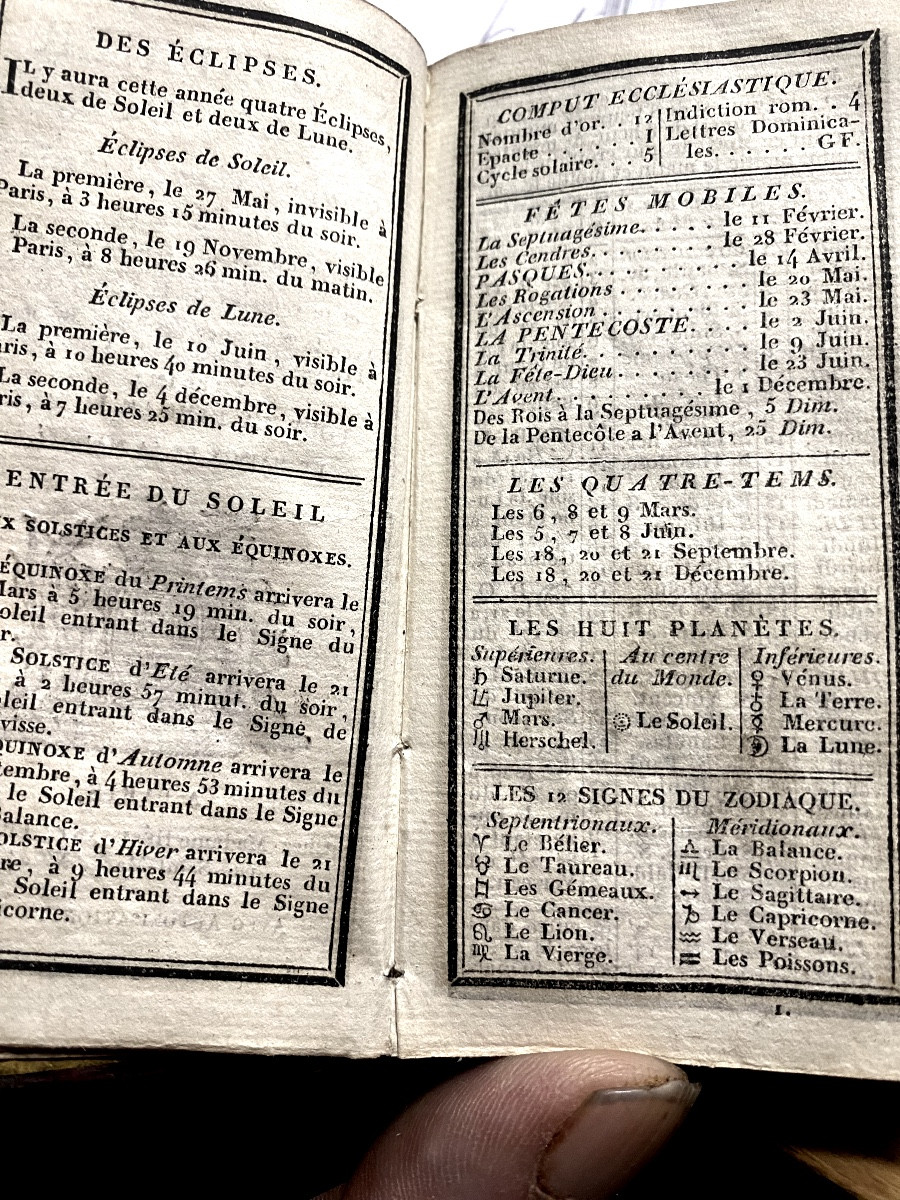 DES ÉCLIPSES.
IL y aura cette année quatre Éclipses,
deux de Soleil et deux de Lune.
Éclipses de Soleil.
La première, le 27 Mai, invisible à
Paris, à 3 heures 15 minutes du soir.
La seconde, le 19 Novembre, visible
Paris, à 8 heures 26 min. du matin.
Éclipses de Lune.
La première, le 10 Juin, visible à
ris, à 10 heures 40 minutes du soir.
La seconde, le 4 décembre, visible à
ris, à 7 heures 25 min. du soir.
ENTRÉE DU SOLEIL
X SOLSTICES ET AUX ÉQUINOXES.
ÉQUINOXE du Printems arrivera le
Mars à 5 heures 19 min. du soir,
oleil entrant dans le Signe du
r.
SOLSTICE d'Eté arrivera le 21
à 2 heures 57 minut. du soir,
leil entrant dans le Signe de
visse.
QUINOXE d'Automne arrivera le
tembre, à 4 heures 53 minutes du
le Soleil entrant dans le Signe
alance.
OLSTICE d'Hiver arrivera le 21
re, à 9 heures 44 minutes du
Soleil entrant dans le Signe
icorne.
COMPUT ECCLÉSIASTIQUE.
Nombre d'or. . 12 Indiction rom. . 4
Epacte . . . . . . 1 Lettres Dominica-
Cycle solaire. . . 5 les. . . . . . G F.
FÊTES MOBILES.
La Septuagésime. . . . . . le 11 Février.
Les Cendres. . . . . . . . le 28 Février.
PASQUES. . . . . . . . . . le 14 Avril.
Les Rogations . . . . . . . le 20 Mai.
L'Ascension . . . . . . . . le 23 Mai.
LA PENTECOSTE. . . . le 2 Juin.
La Trinité. . . . . . . . . le 9 Juin.
La Féte-Dieu . . . . . . . le 23 Juin.
L'Avent. . . . . . . . . le 1 Décembre.
Des Rois à la Septuagésime, 5 Dim.
De la Pentecôte a l'Avent, 25 Dim.
LES QUATRE-TEMS.
Les 6, 8 et 9 Mars.
Les 5, 7 et 8 Juin.
Les 18, 20 et 21 Septembre.
Les 18, 20 et 21 Décembre.
LES HUIT PLANÈTES.
Supérieures. Au centre Inférieures.
♄ Saturne. du Monde. ♀ Vénus.
♃ Jupiter. ♁ La Terre.
♂ Mars. Le Soleil. ☿ Mercure.
Herschel. La Lune.
LES 12 SIGNES DU ZODIAQUE.
Septentrionaux. Méridionaux.
♈ Le Bélier. ♎ La Balance.
♉ Le Taureau. ♏ Le Scorpion.
♊ Les Gémeaux. ♐ Le Sagittaire.
♋ Le Cancer. ♑ Le Capricorne.
♌ Le Lion. ♒ Le Verseau.
♍ La Vierge. ♓ Les Poissons.
1.